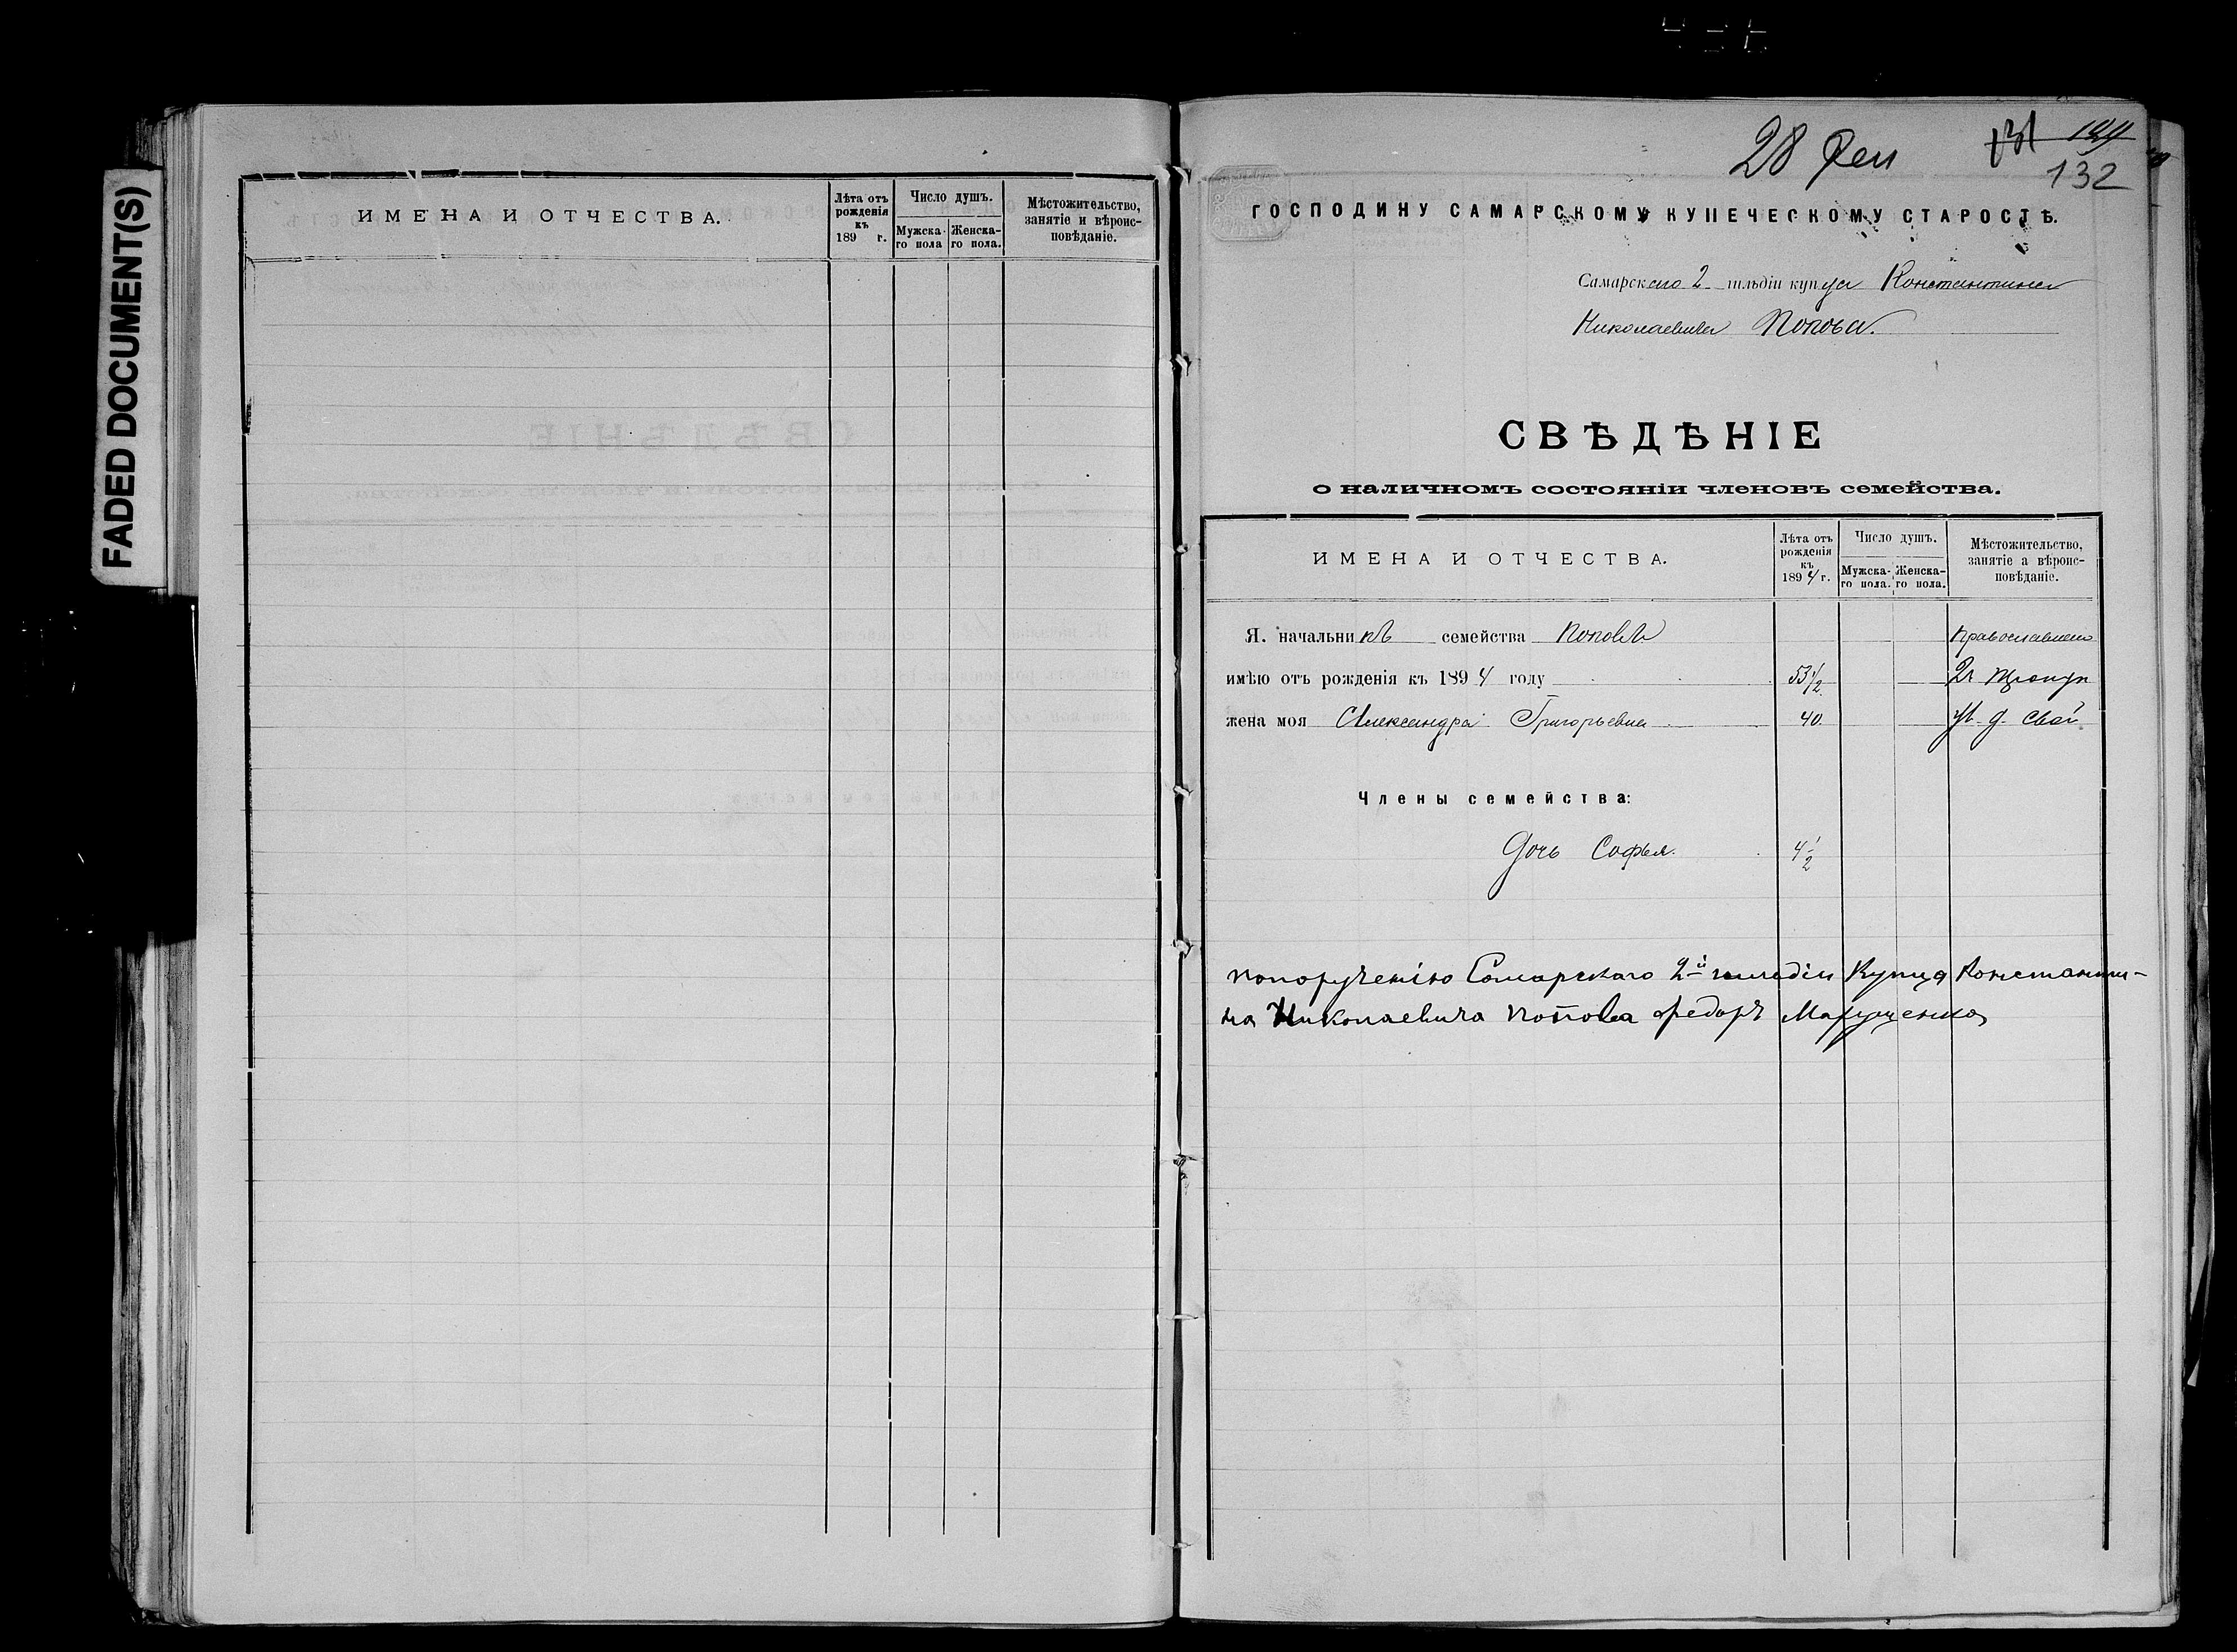 FADED DOCUMENT(S)
ИМЕНА И ОТЧЕСТВА.
Лѣта отъ рожденія къ 189 г.
Число душъ.
Мужска-го пола
Женска-го пола.
Мѣстожительство, занятіе и вѣроис-повѣданіе.
28
131 132
ГОСПОДИНУ САМАРСКОМУ КУПЕЧЕСКОМУ СТАРОСТѢ.
Самарскаго 2 гильдіи купца Константина
Николаевича Попова.
СВѢДѢНІЕ
о наличномъ состояніи членовъ семейства.
ИМЕНА И ОТЧЕСТВА.
Лѣта отъ рожденія къ 1894 г.
Число душъ.
Мужска-го пола.
Женска-го пола.
Мѣстожительство, занятіе а вѣроис-повѣданіе.
Я. начальникъ семейства Поповъ
имѣю отъ рожденія къ 1894 году 53 1/2
жена моя Александра Григорьевна 40. д. свой
Члены семейства:
Дочь Софья. 4 1/2
попорученію Самарскаго 2й гильдіи Купца Константи-
на Николаевича Попова Федоръ